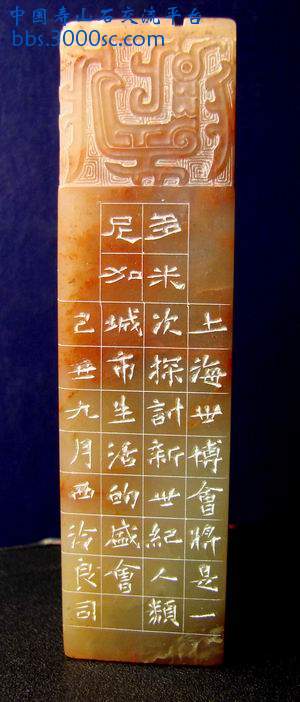 中国寿山石交流平台
bbs.3000sc.com
多米
尼加
上海世博會將是一
次探討新世紀人類
城市生活的盛會
己丑九月西泠良司